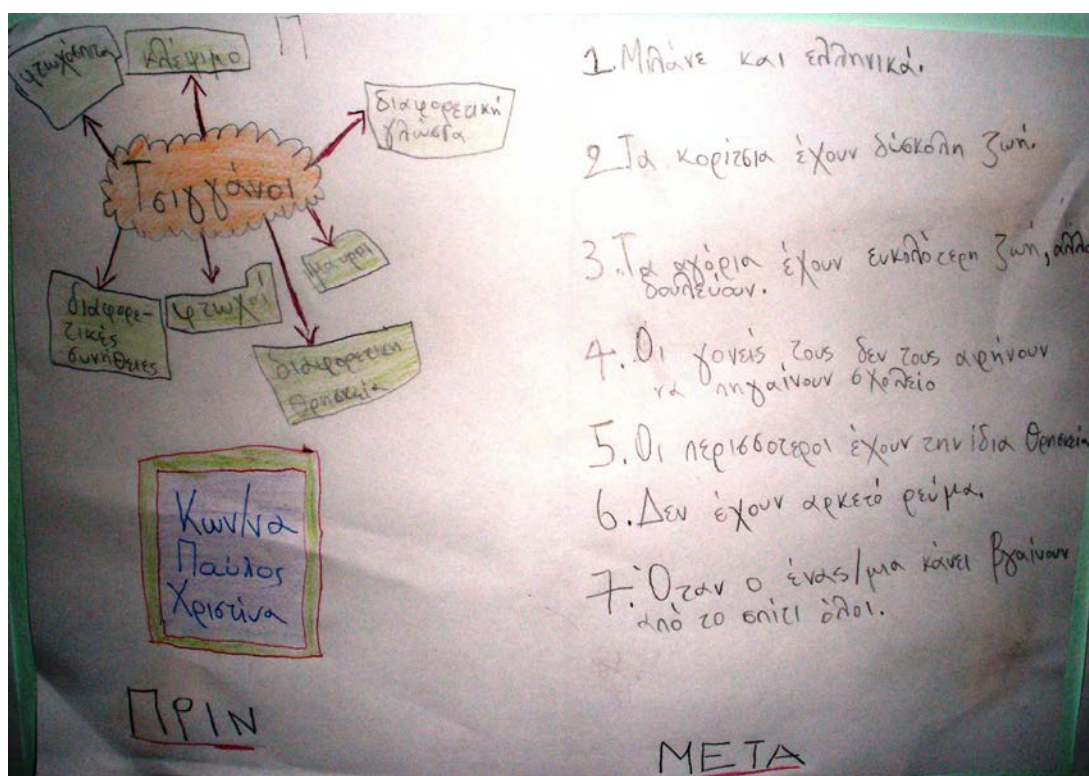 Π
φτωχόσπιτα
κλέψιμο
διαφορετική
γλώσσα
Τσιγγάνοι
Μαυροι
διαφορε-
τικές
συνήθειες
φτωχοί
διαφορετικη
θρησκεία
Κων/να
Παύλος
Χριστίνα
ΠΡΙΝ
1. Μιλάνε και ελληνικά.
2. Τα κορίτσια έχουν δύσκολη ζωή.
3. Τα αγόρια έχουν ευκολότερη ζωή, αλλά
δουλεύουν.
4. Οι γονείς τους δεν τους αφήνουν
να πηγαίνουν σχολείο
5. Οι περισσοτεροι έχουν την ίδια θρησκεία
6. Δεν έχουν αρκετό ρεύμα.
7. Όταν ο ένας/μια κάνει βγαίνουν
από το σπίτι όλοι.
ΜΕΤΑ